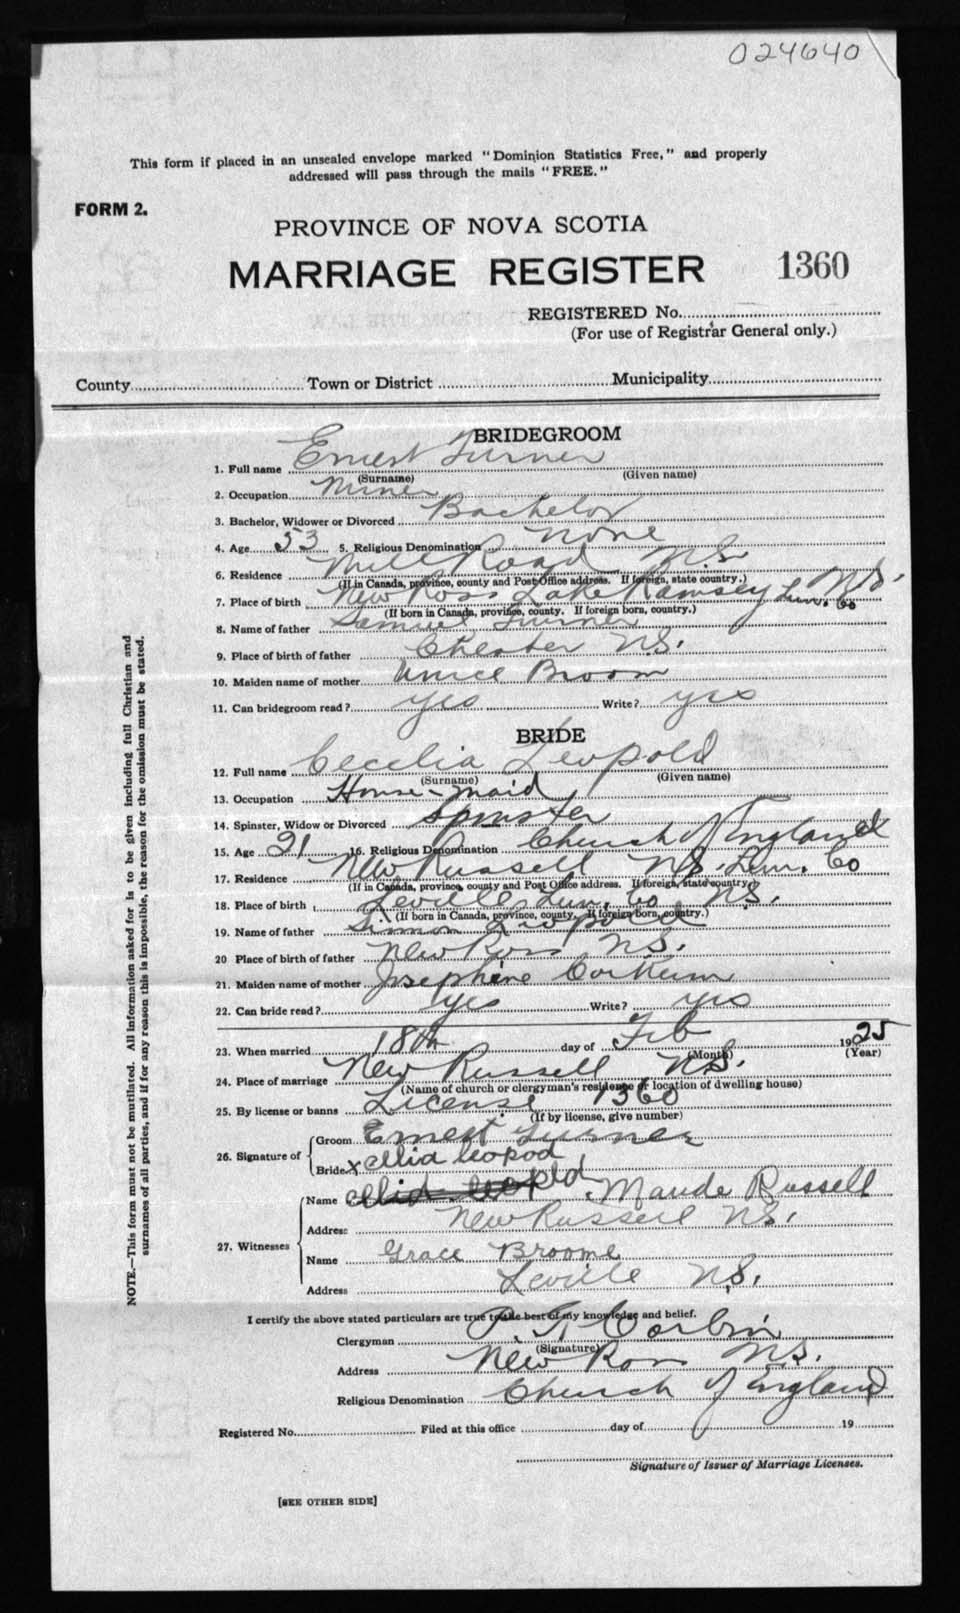 024640
This form if placed in an unsealed envelope marked "Dominion Statistics Free," and properly
addressed will pass through the mails "FREE."
FORM 2.
PROVINCE OF NOVA SCOTIA
MARRIAGE REGISTER 1360
REGISTERED No.
(For use of Registrar General only.)
County Town or District Municipality
BRIDEGROOM
1. Full name Ernest Turner
(Surname) (Given name)
2. Occupation Miner
3. Bachelor, Widower or Divorced Bachelor
4. Age 53 5. Religious Denomination None
6. Residence Mill Road N.S.
(If in Canada, province, county and Post Office address. If foreign, state country.)
7. Place of birth New Ross Lake Ramsey Lun. Co N.S.
(If born in Canada, province, county. If foreign born, country.)
8. Name of father Samuel Turner
9. Place of birth of father Chester N.S.
10. Maiden name of mother Broom
11. Can bridegroom read? yes Write? yes
BRIDE
12. Full name Cecelia Leopold
(Surname) (Given name)
13. Occupation House-maid
14. Spinster, Widow or Divorced Spinster
15. Age 21 16. Religious Denomination Church of England
17. Residence New Russell N.S. Lun. Co
(If in Canada, province, county and Post Office address. If foreign, state country)
18. Place of birth Leville Lun. Co N.S.
(If born in Canada, province, county. If foreign born, country.)
19. Name of father Simon Leopold
20 Place of birth of father New Ross N.S.
21. Maiden name of mother Josephine Corkum
22. Can bride read? yes Write? yes
23. When married 18th day of Feb 1925
(Month) (Year)
24. Place of marriage New Russell N.S.
(Name of church or clergyman's residence or location of dwelling house)
25. By license or banns License 1360
(If by license, give number)
26. Signature of Groom Ernest Turner
Bride x cellia leopod
27. Witnesses Name Maude Russell
Address New Russell N.S.
Name Grace Broome
Address Leville N.S.
I certify the above stated particulars are true to the best of my knowledge and belief.
Clergyman Corbin
(Signature)
Address New Ross N.S.
Religious Denomination Church of England
Registered No. Filed at this office day of 19
Signature of Issuer of Marriage Licenses.
[SEE OTHER SIDE]
NOTE.—This form must not be mutilated. All information asked for is to be given including full Christian and
surnames of all parties, and if for any reason this is impossible, the reason for the omission must be stated.